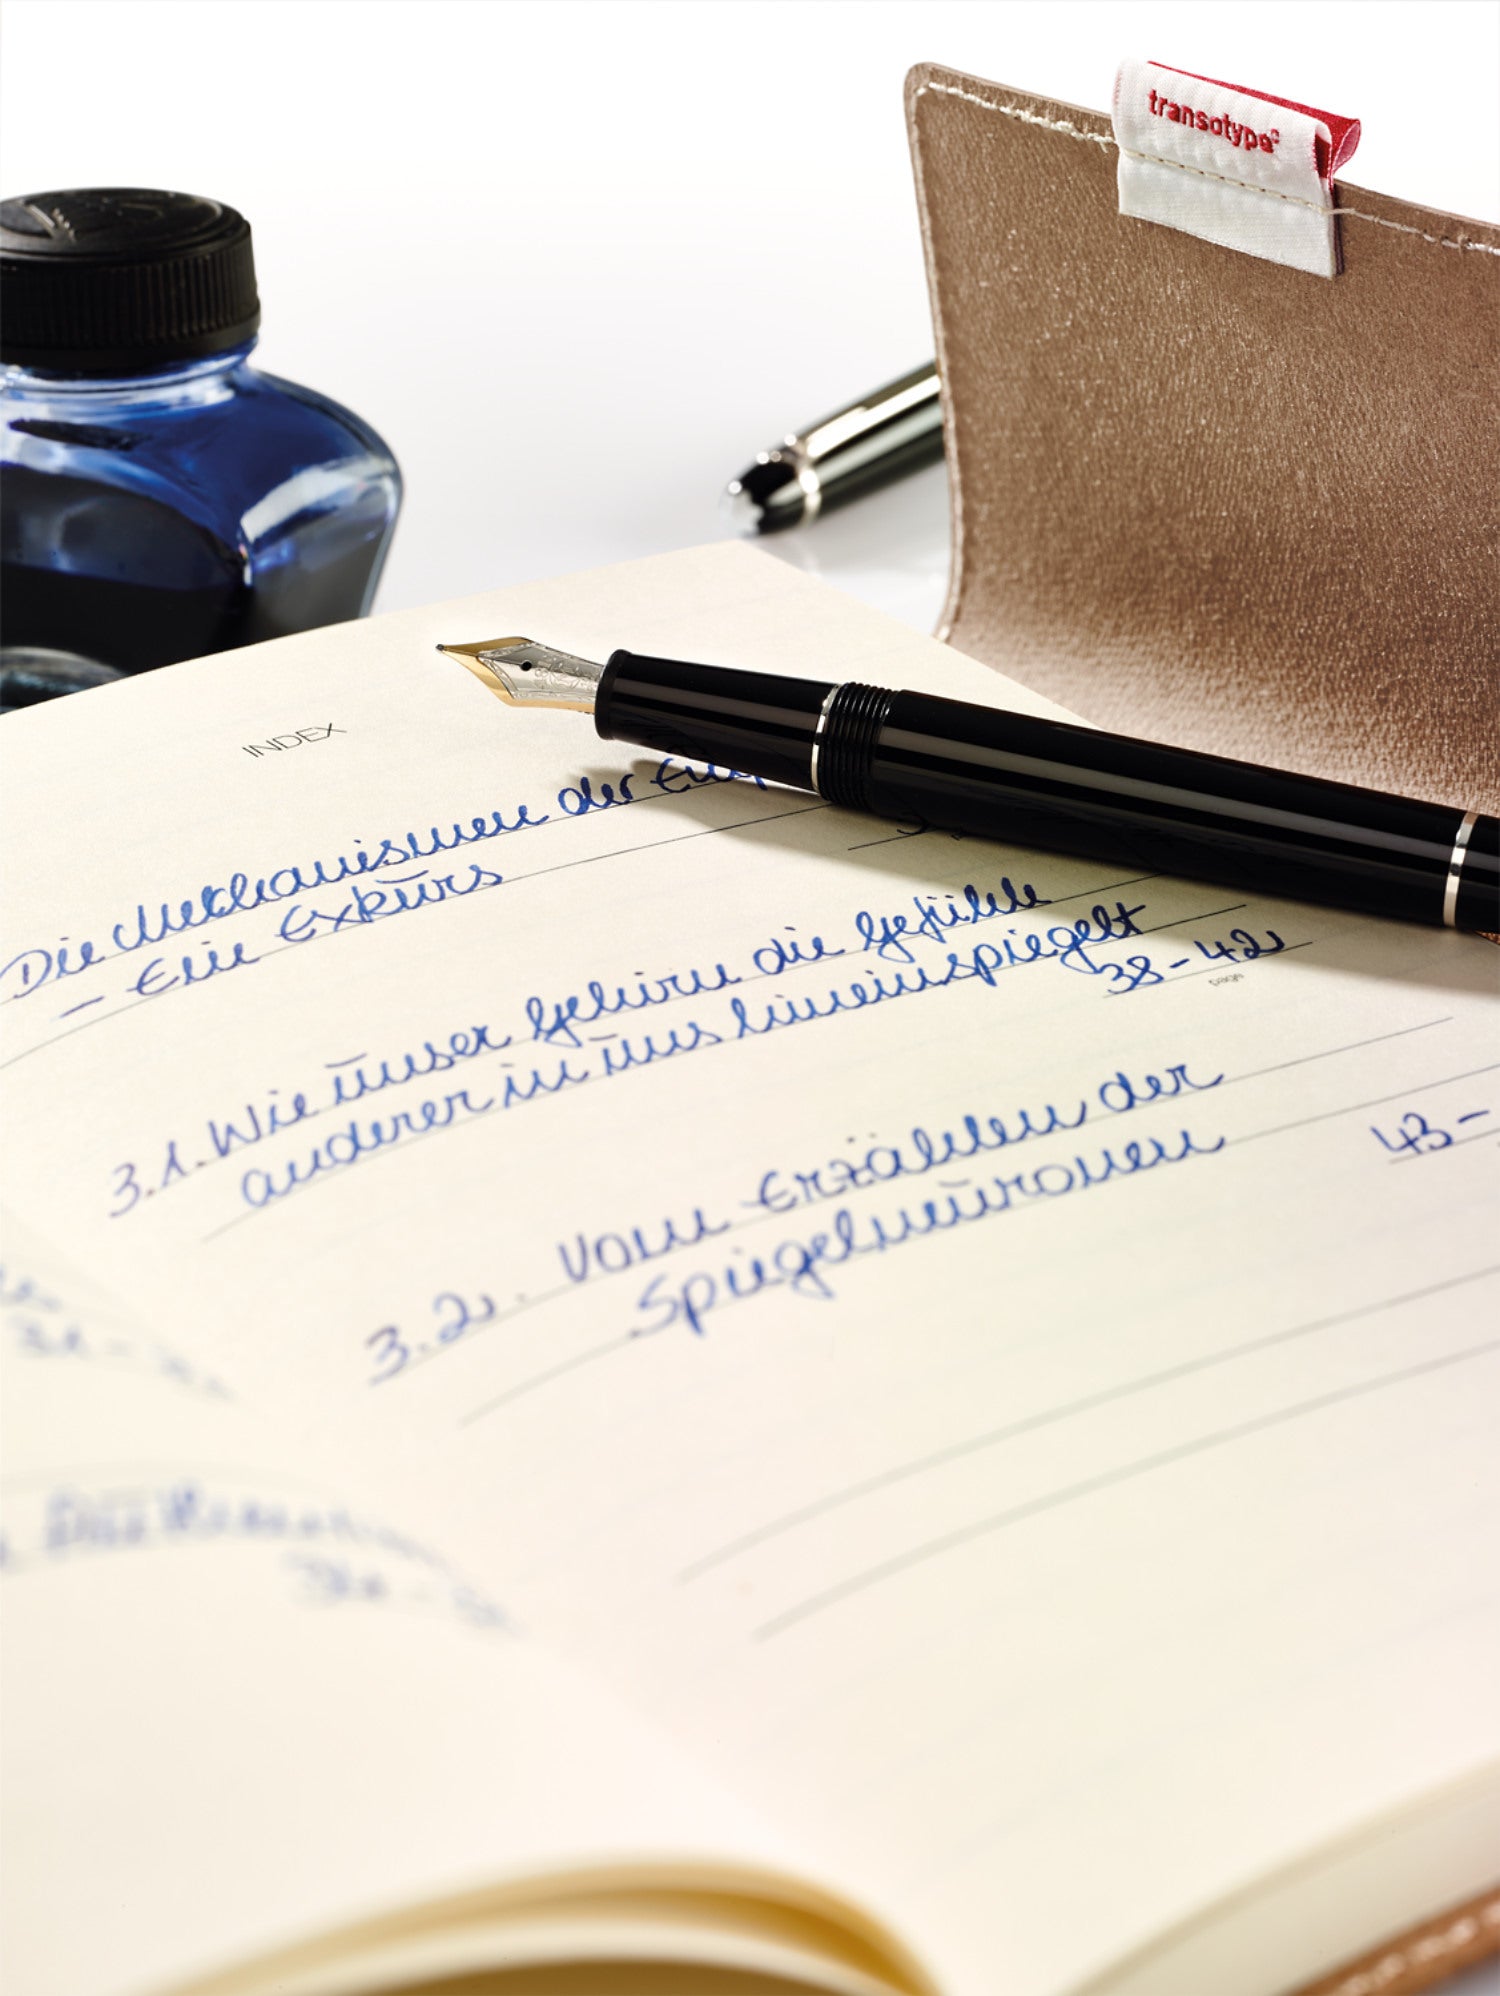 transotype
INDEX
Die Mechanismen der
- Ein Exkurs
3.1. Wie unser Gehirn die Gefühle
anderer in uns hineinspiegelt
38-42
page
3.2. Vom Erzählen der
Spiegelneuronen
43-